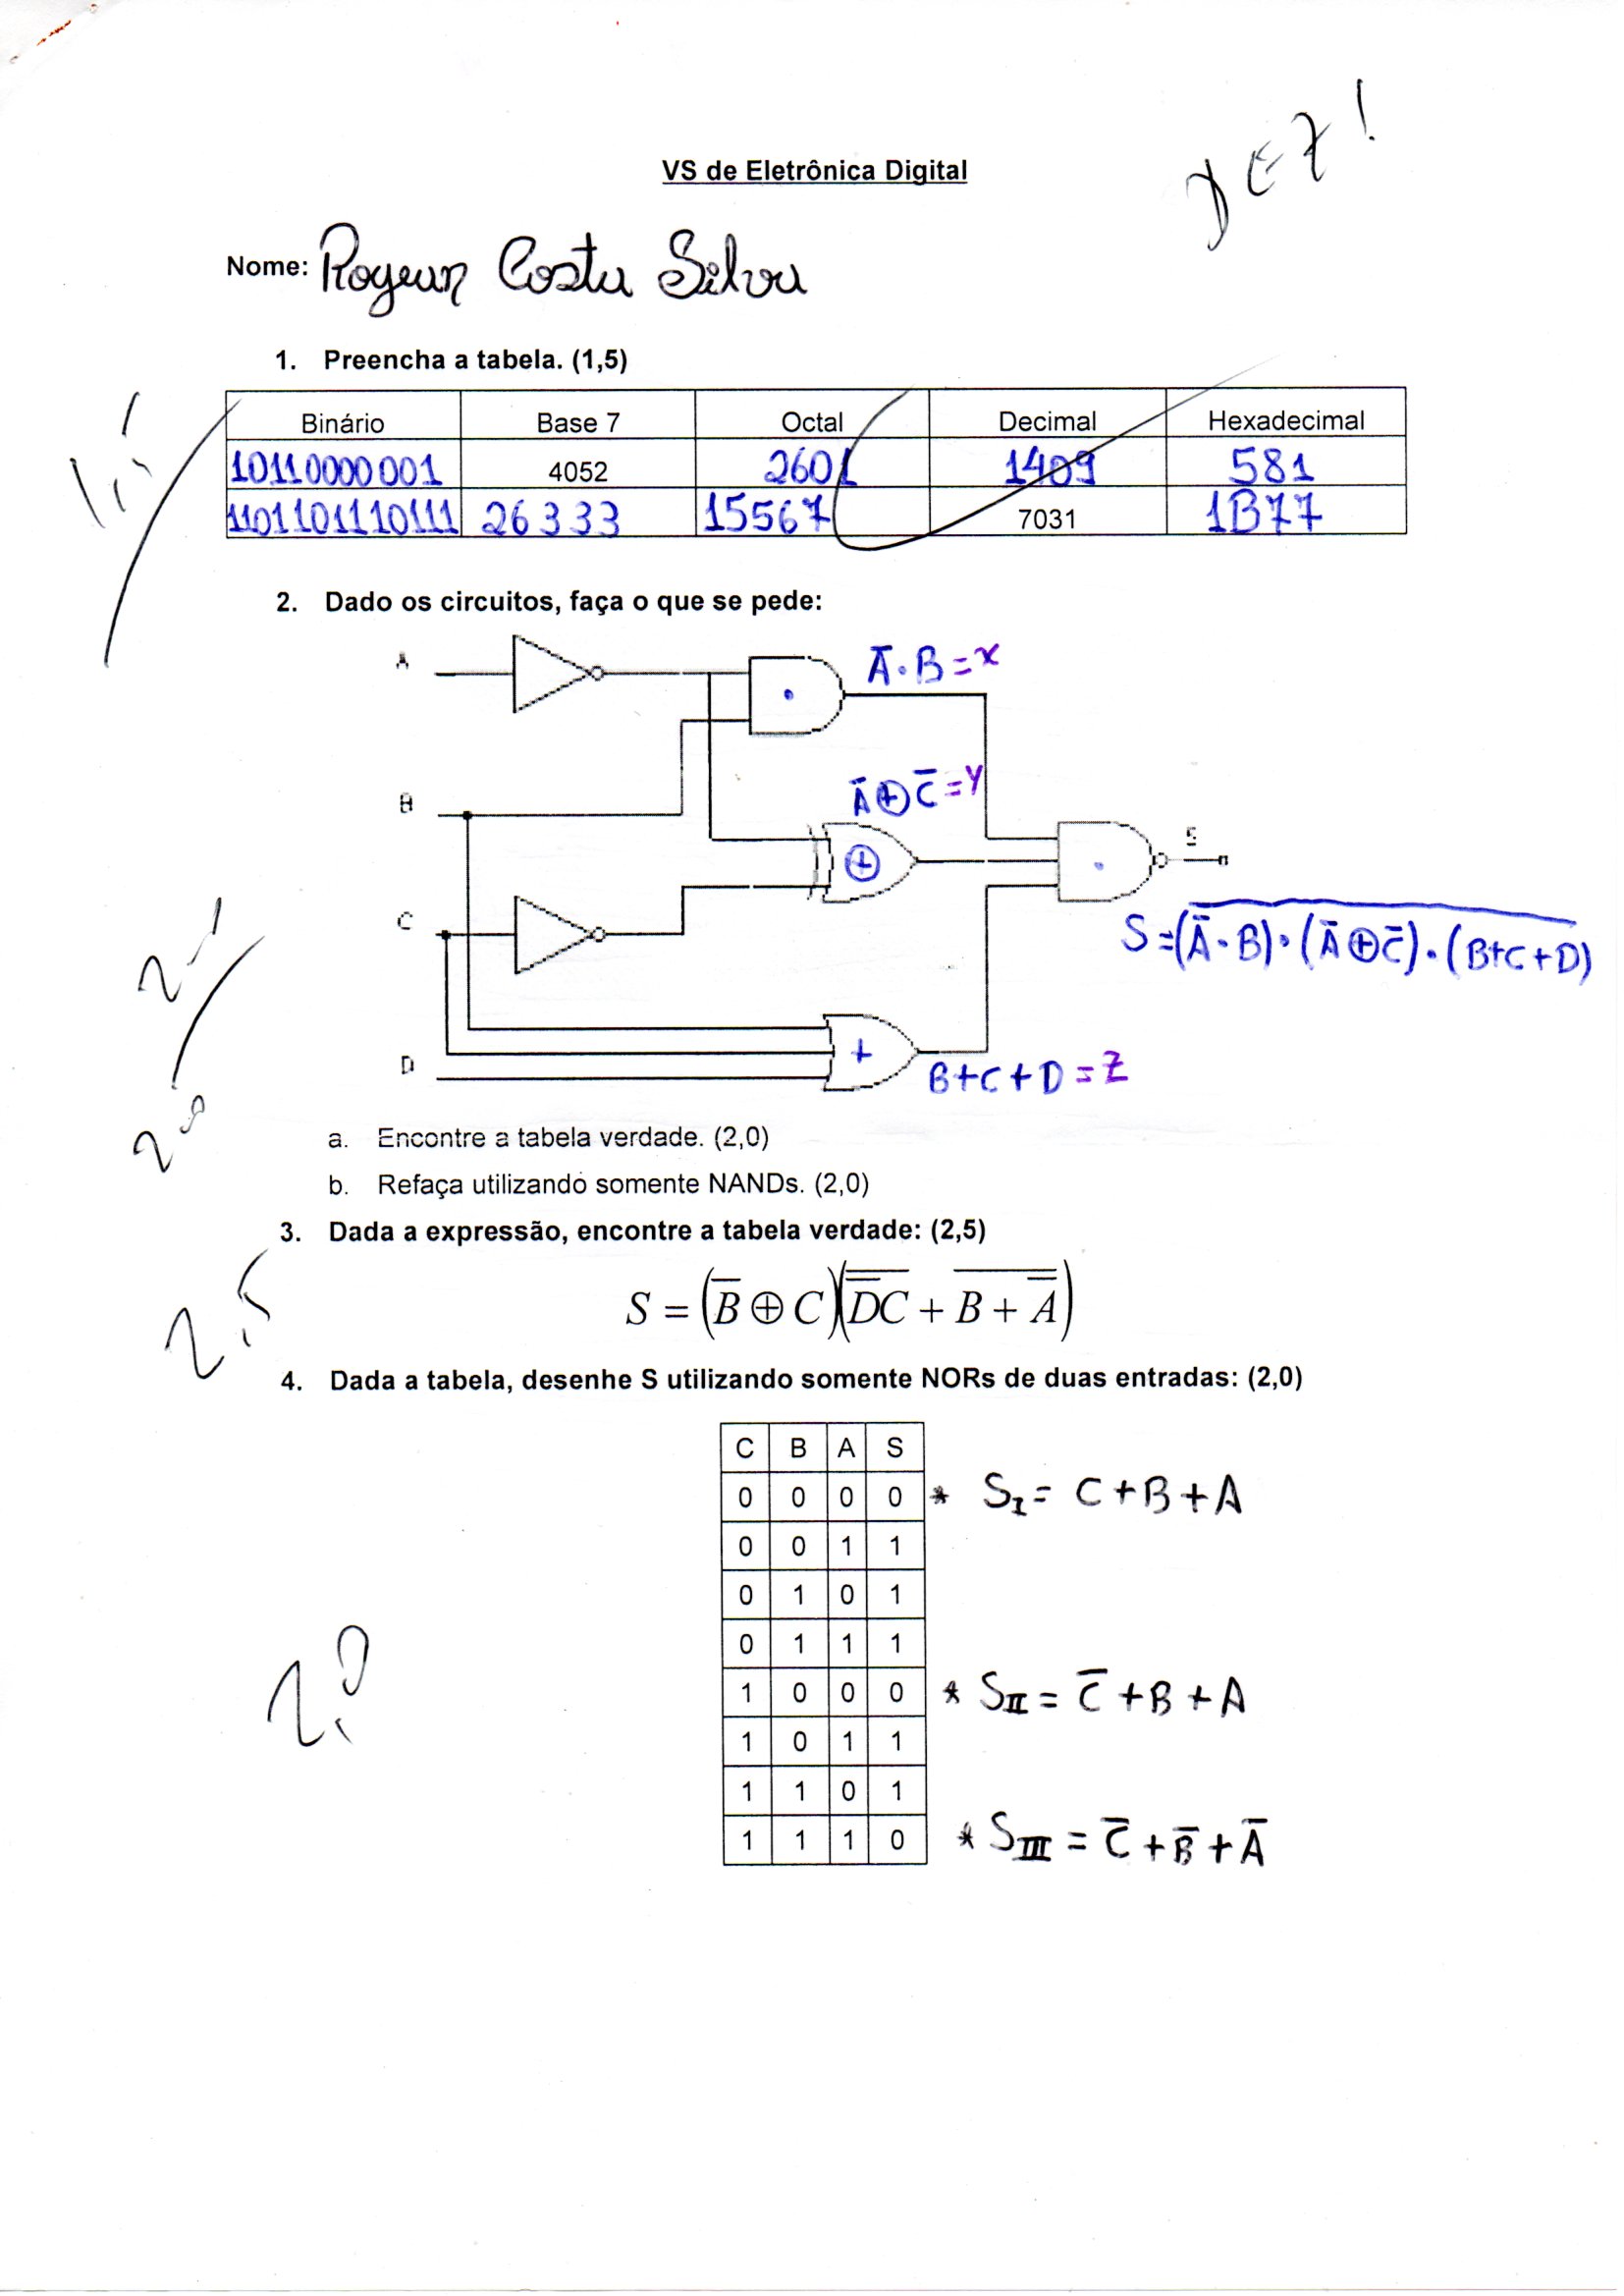 DEZ!
VS de Eletrônica Digital
Nome: Costa Silva
1. Preencha a tabela. (1,5)
Binário Base 7 Octal Decimal Hexadecimal
10110000001 4052 2601 1409 581
1101101110111 26333 15567 7031 1B77
2. Dado os circuitos, faça o que se pede:
A
Ā·B=x
B
Ā⊕C̅=y
⊕
S
C
S=(Ā·B)·(Ā⊕C̅)·(B+C+D)
D
+
B+C+D=Z
2,0
a. Encontre a tabela verdade. (2,0)
b. Refaça utilizando somente NANDs. (2,0)
3. Dada a expressão, encontre a tabela verdade: (2,5)
2,5
S = (B̅ ⊕ C)(D̿C̅ + B + A̿)
4. Dada a tabela, desenhe S utilizando somente NORs de duas entradas: (2,0)
C B A S
0 0 0 0 * S_I = C+B+A
0 0 1 1
0 1 0 1
0 1 1 1
2,0
1 0 0 0 * S_II = C̅+B+A
1 0 1 1
1 1 0 1
1 1 1 0 * S_III = C̅+B̅+Ā